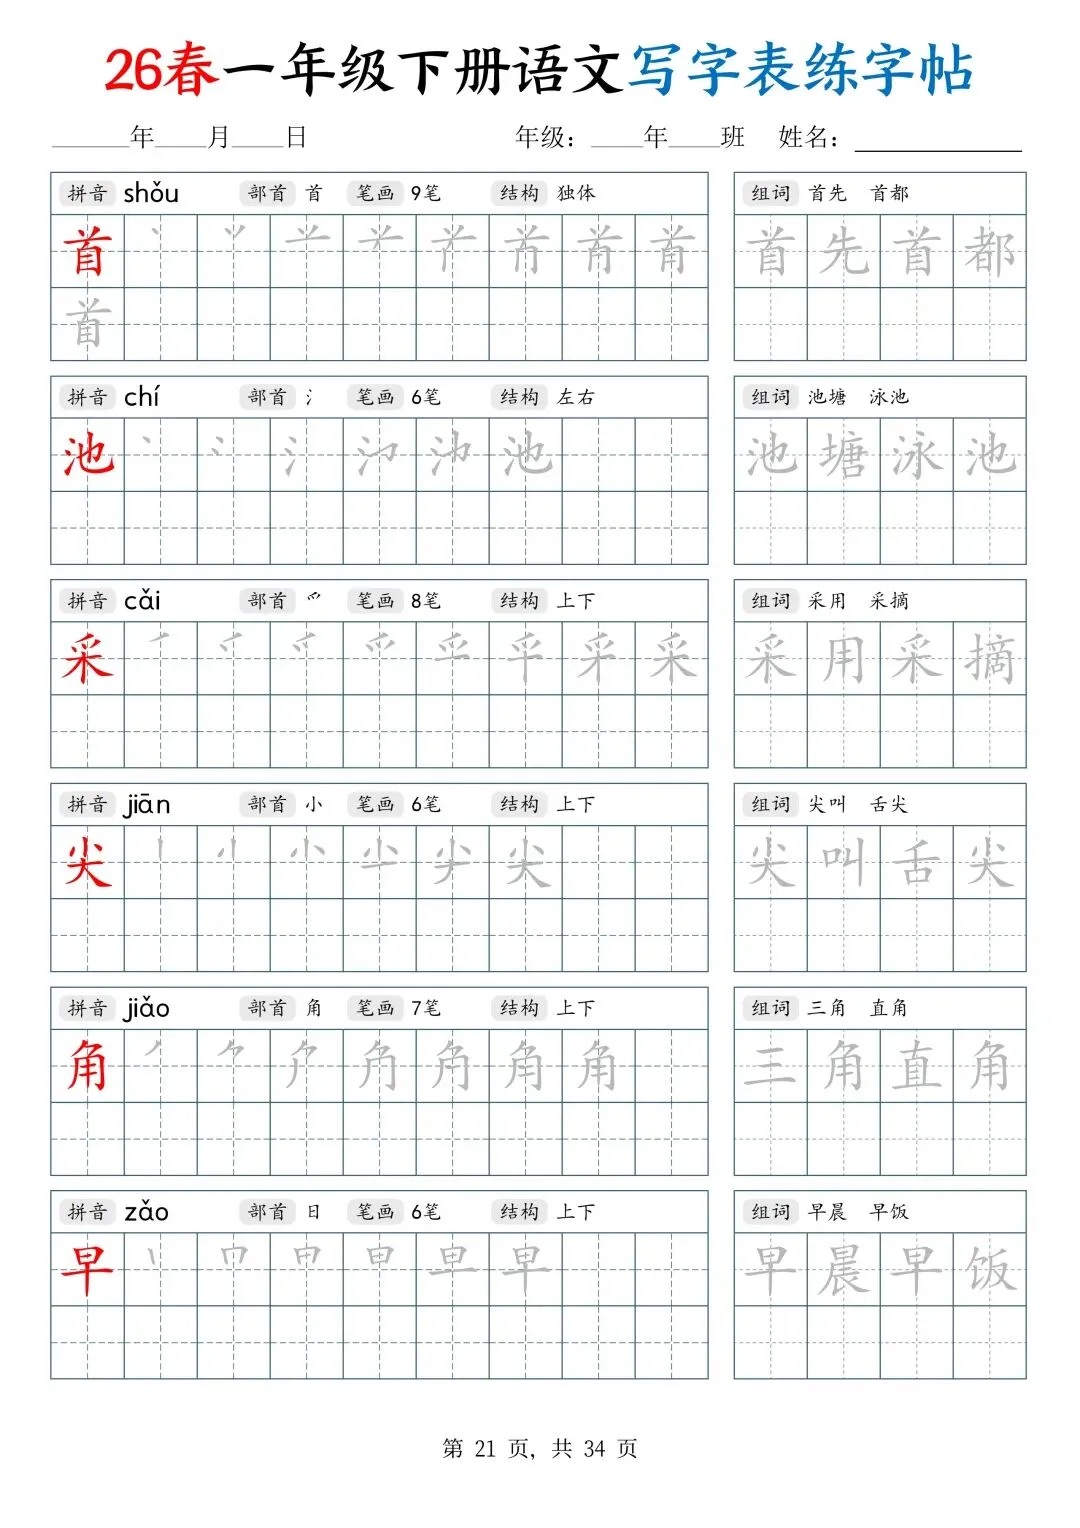 26春一年级下册语文写字表练字帖
____年____月____日 年级：____年____班 姓名：__________
拼音 shǒu 部首 首 笔画 9笔 结构 独体 组词 首先 首都
首 首先首都
首
拼音 chí 部首 氵 笔画 6笔 结构 左右 组词 池塘 泳池
池 池 池塘泳池
拼音 cǎi 部首 爫 笔画 8笔 结构 上下 组词 采用 采摘
采 采 采用采摘
拼音 jiān 部首 小 笔画 6笔 结构 上下 组词 尖叫 舌尖
尖 尖 尖叫舌尖
拼音 jiǎo 部首 角 笔画 7笔 结构 上下 组词 三角 直角
角 角 三角直角
拼音 zǎo 部首 日 笔画 6笔 结构 上下 组词 早晨 早饭
早 早 早晨早饭
第 21 页，共 34 页